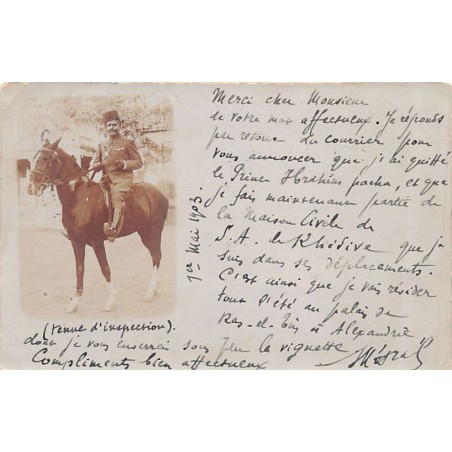 Merci cher Monsieur
de votre mot affectueux. Je réponds
par retour du courrier pour
vous annoncer que j'ai quitté
le Prince Ibrahim pacha, et que
je fais maintenant partie de
la Maison Civile de
S. A. le Khédive que je
suis dans ses déplacements.
C'est ainsi que je vais résider
tout l'été au palais de
Ras-el-Tin à Alexandrie
dont je vous enverrai sous peu la vignette
Compliments bien affectueux
(Tenue d'inspection).
1er Mai 1903.